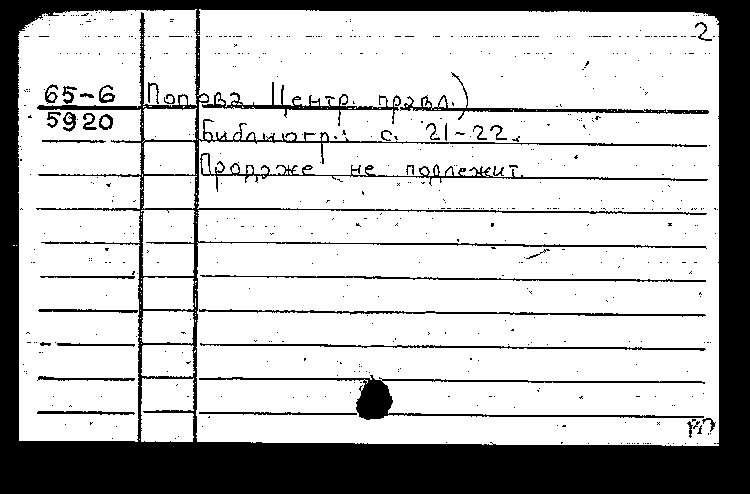 2
65-6 Попова Центр. правл.)
5920 Библиогр.: с. 21-22.
Продаже не подлежит.